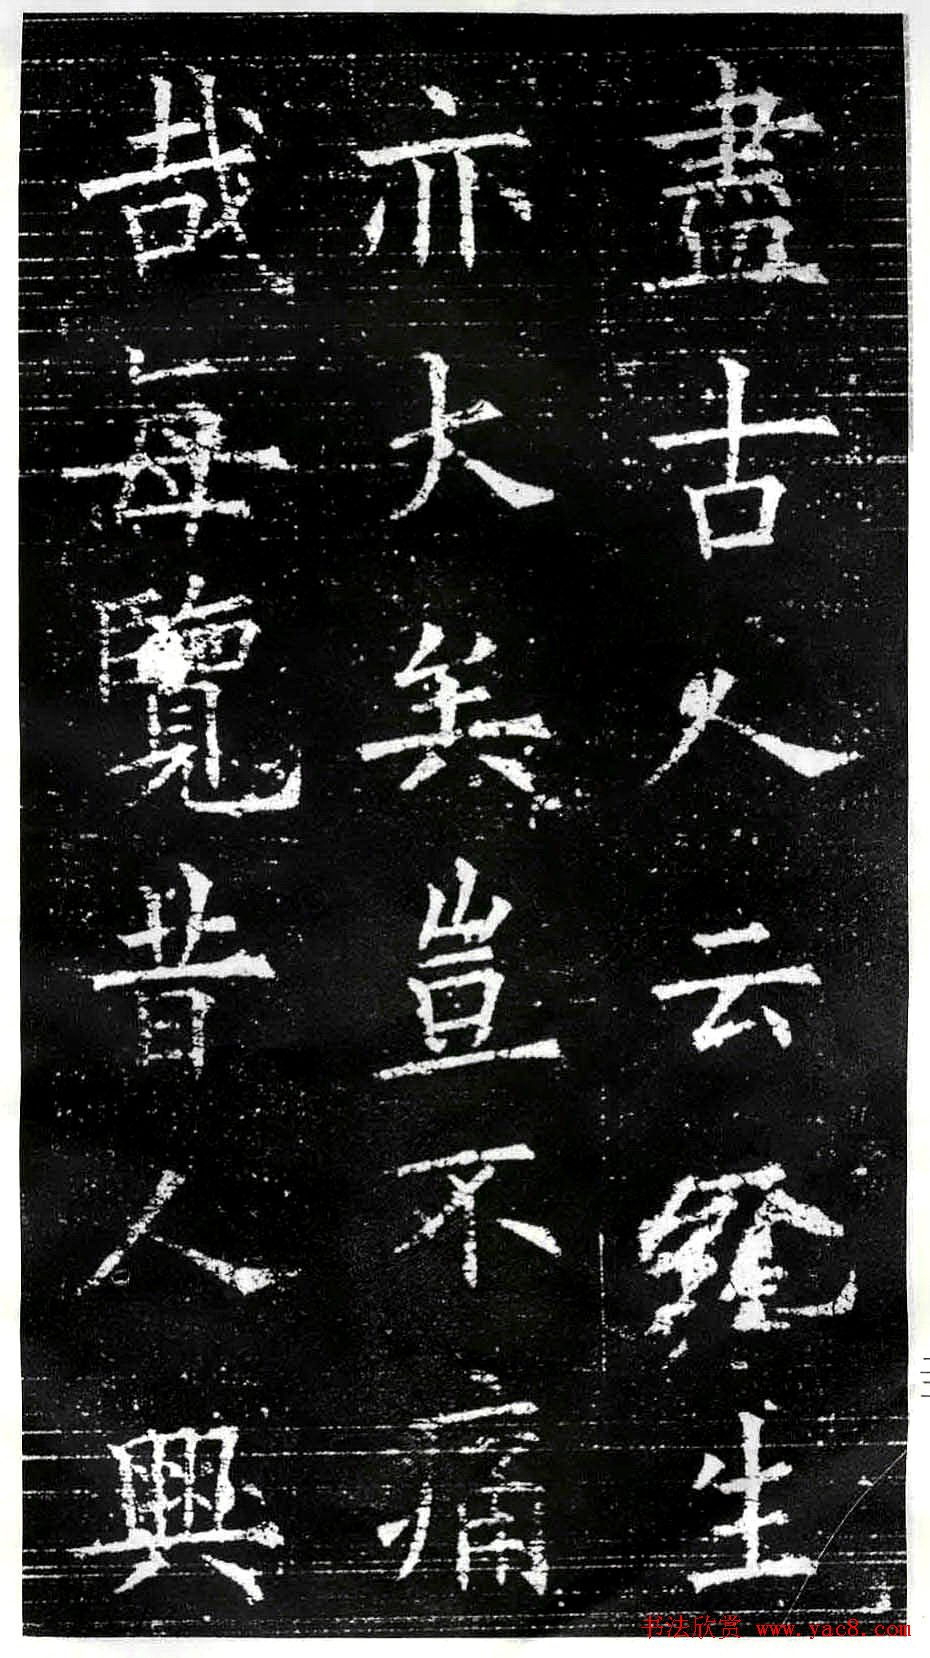 盡古人云生
亦大矣豈不痛
哉每覽昔人興
书法欣赏 www.yac8.com